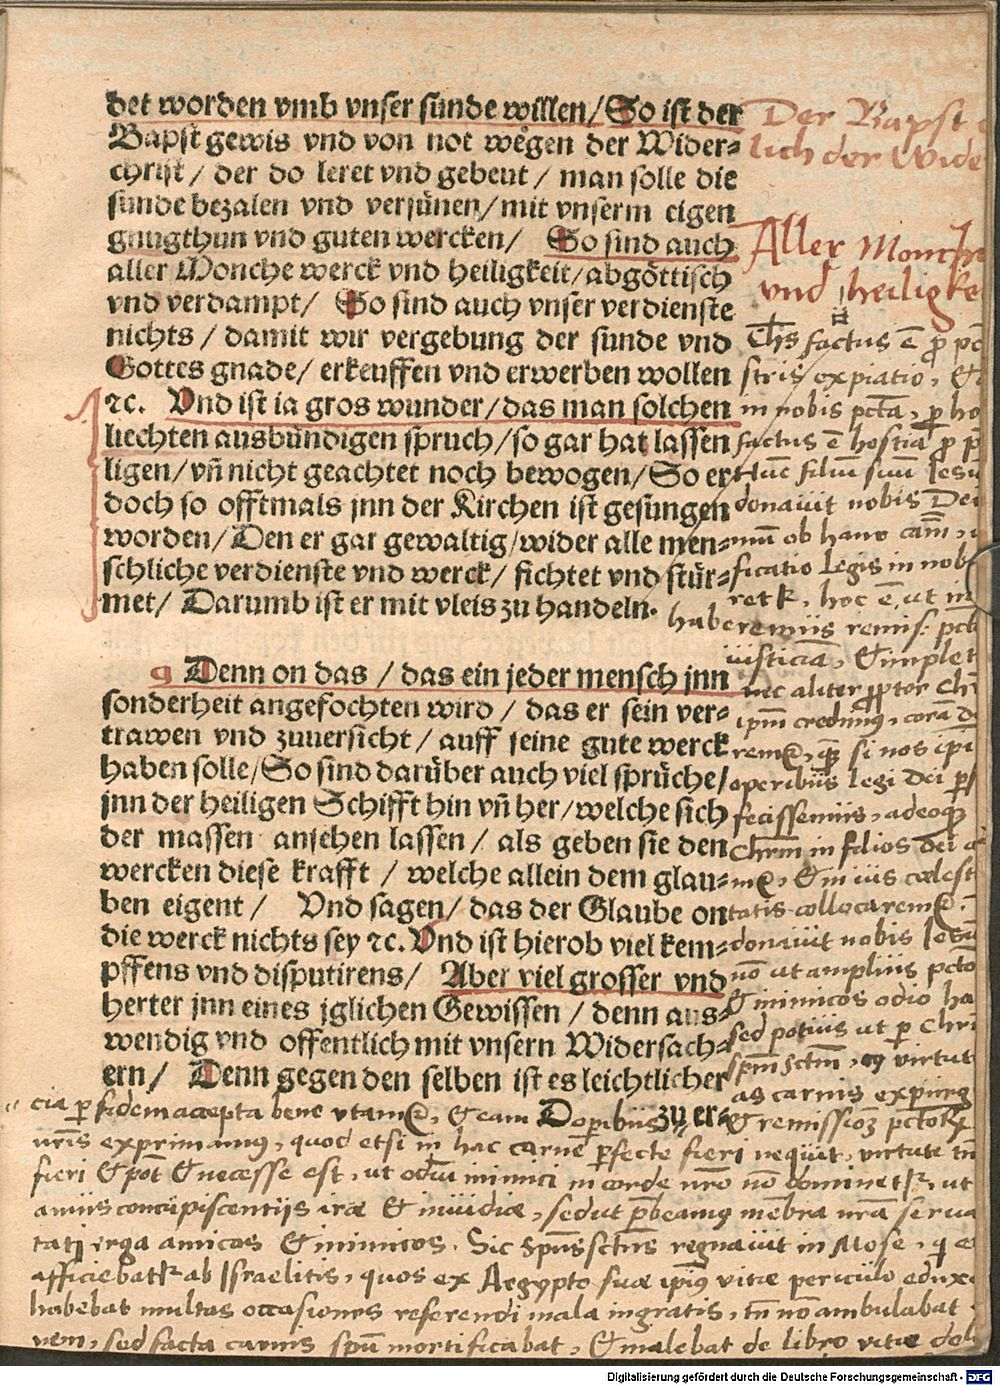 det worden vmb vnser sunde willen/ So ist der
Bapst gewis vnd von not wegen der Wider=
christ/ der do leret vnd gebeut/ man solle die
sunde bezalen vnd versünen/ mit vnserm eigen
gnugthun vnd guten wercken/ So sind auch
aller Mönche werck vnd heiligkeit/ abgöttisch
vnd verdampt/ So sind auch vnser verdienste
nichts/ damit wir vergebung der sunde vnd
Gottes gnade/ erkeuffen vnd erwerben wollen
ꝛc. Vnd ist ia gros wunder/ das man solchen
liechten ausbündigen spruch/ so gar hat lassen
ligen/ vñ nicht geachtet noch bewogen/ So er
doch so offtmals jnn der Kirchen ist gesungen
worden/ Den er gar gewaltig/ wider alle men=
schliche verdienste vnd werck/ fichtet vnd stür=
met/ Darumb ist er mit vleis zu handeln.
g Denn on das/ das ein jeder mensch jnn
sonderheit angefochten wird/ das er sein ver=
trawen vnd zuuersicht/ auff seine gute werck
haben solle/ So sind darüber auch viel sprüche/
jnn der heiligen Schifft hin vñ her/ welche sich
der massen ansehen lassen/ als geben sie den
wercken diese krafft/ welche allein dem glau=
ben eigent/ Vnd sagen/ das der Glaube on
die werck nichts sey ꝛc. Vnd ist hierob viel kem=
pffens vnd disputirens/ Aber viel grosser vnd
herter jnn eines jglichen Gewissen/ denn aus=
wendig vnd offentlich mit vnsern Widersach=
ern/ Denn gegen den selben ist es leichtlicher
zu er=
Der Bapst
lich der Wide
Aller Monche
vnd heiligke
factus ē pro
expiatio, &
in nobis pctā, p ho
factus ē hostia pro
Hūc filiū suū Iesu
donauit nobis De
ob hanc cām,
ficatio Legis in nob
retr, hoc ē, ut in
haberemus remis: pctō
iusticiā, & implet
nec aliter propter Chr
ipm credimus, corā d
si nos ipi
operibus legi dei
fecissemus, adeoque
Chrm in filios dei
& in ius coelest
tatis collocarem
donauit nobis Iesū
nō ut amplius
& inimicos odio ha
sed potius ut p Chri
spm sctm, virtut
as carnis expurg
& remissionē
cia p fidem accepta bene utam & eam operibus
exprimamus, quod etsi in hac carne pfecte fieri nequit, virtute tn
fieri & pōt & necesse est, ut odiū inimici in corde nrō nō dominetr, ut
amus concupiscentijs irae & inuidiae, sed ut pbeamus mēbra nrā serua
erga amicos & inimicos. Sic Spūs sctus regnauit in Mose, q
afficiebatr ab Israelitis, quos ex Aegypto suae ipius vitae periculo eduxe
habebat multas occasiones referendi mala ingratis, tn nō ambulabat
sed facta carnis spū mortificabat, & malebat de libro vitae dele
Digitalisierung gefördert durch die Deutsche Forschungsgemeinschaft - DFG